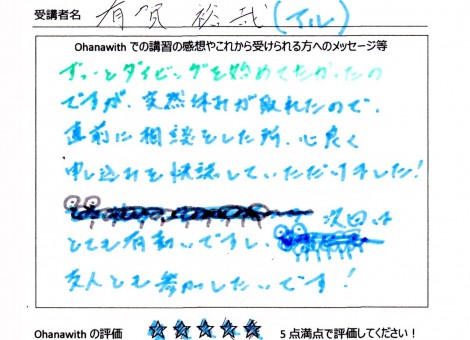 受講者名 有賀 裕哉 (イル)
Ohanawith での講習の感想やこれから受けられる方へのメッセージ等
ずっーとダイビングを始めてたかったの
ですが、突然休みが取れたので、
直前に相談をした所、心良く
申し込みを快諾していただけました！
次回は
とても有難いですし、
友人とも参加したいです！
Ohanawith の評価 ☆☆☆☆☆ 5 点満点で評価してください！